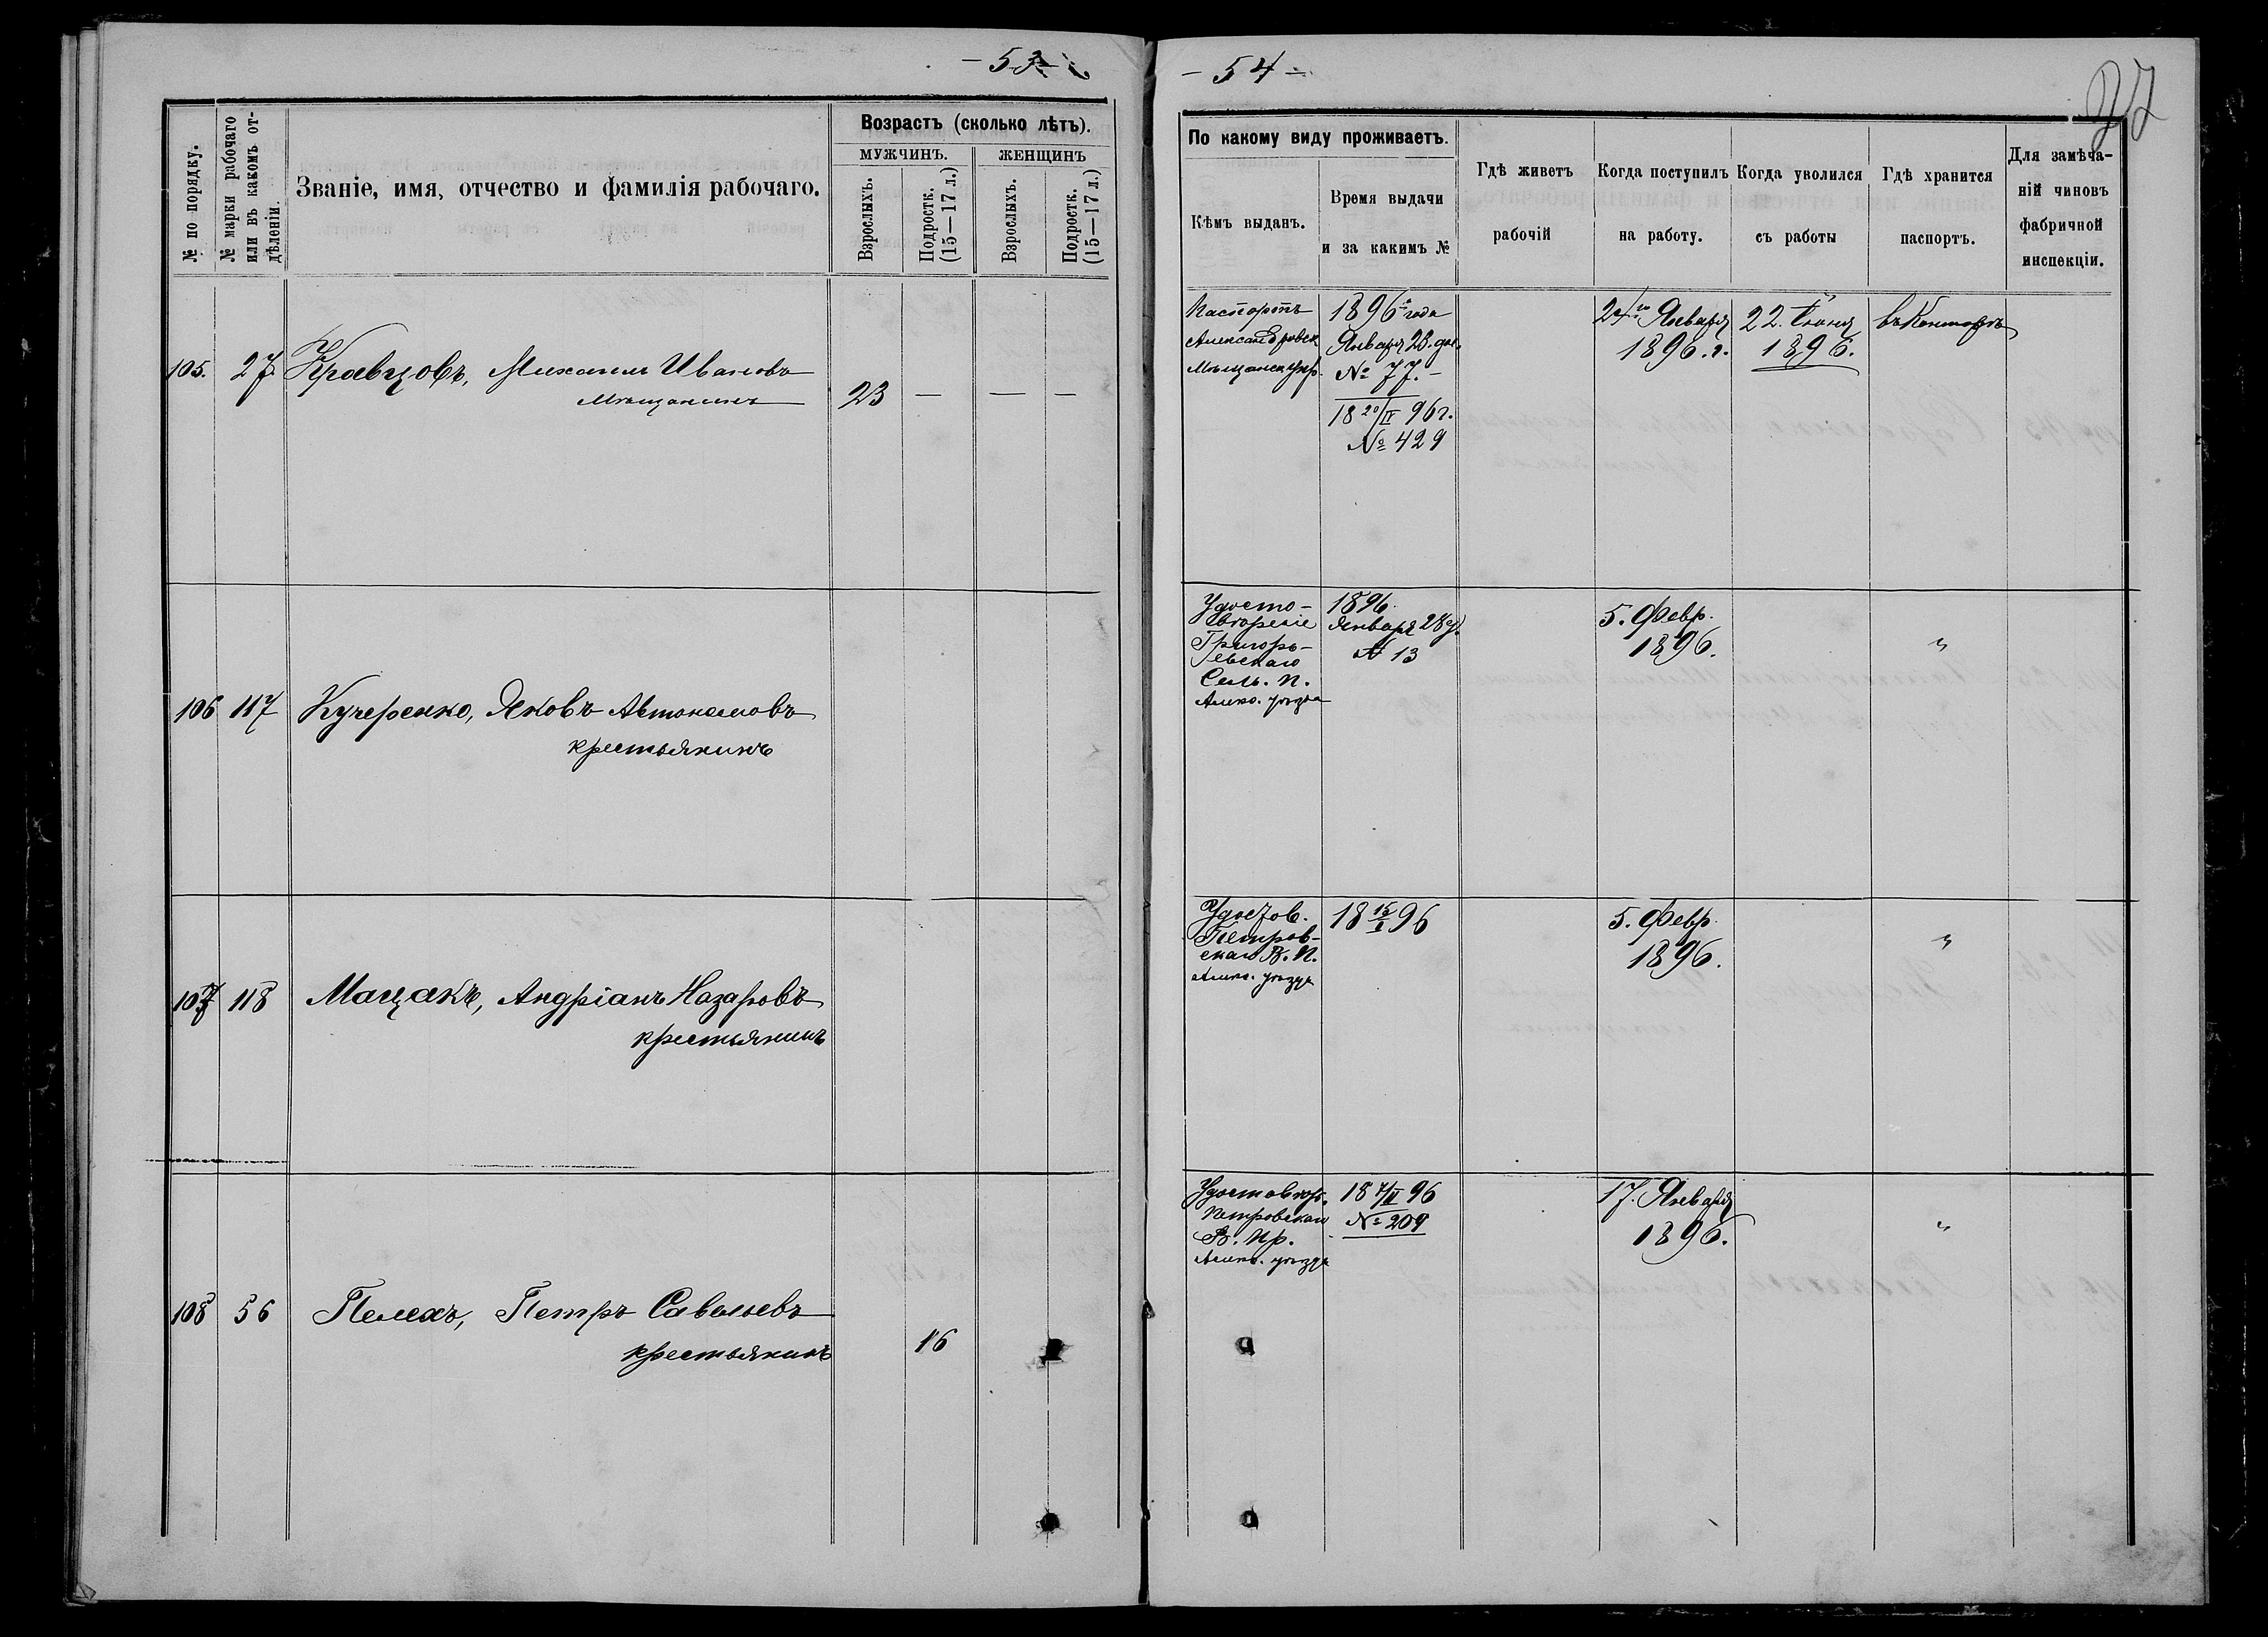 - 53 -
№ по порядку.
№ марки рабочаго
или въ какомъ от-
дѣленіи.
Званіе, имя, отчество и фамилія рабочаго.
Возрастъ (сколько лѣтъ).
МУЖЧИНЪ.
ЖЕНЩИНЪ
Взрослыхъ.
Подростк.
(15—17 л.)
Взрослыхъ.
Подростк.
(15—17 л.)
105. 27. Кравцовъ, Михаилъ Ивановъ
Мѣщанинъ 23 — — —
106 117 Кучеренко, Яковъ Автономовъ
крестьянинъ
107 118 Мацакъ, Андріанъ Назаровъ
крестьянинъ
108 56 Пелехъ, Петръ Савельевъ
крестьянинъ 16
- 54 -
По какому виду проживаетъ.
Кѣмъ выданъ.
Время выдачи
и за какимъ №
Гдѣ живетъ
рабочій
Когда поступилъ
на работу.
Когда уволился
съ работы
Гдѣ хранится
паспортъ.
Для замѣча-
ній чиновъ
фабричной
инспекціи.
Паспортъ
Александровск
Мѣщанск упр.
1896 года
Января 28. дня.
№ 77. —
18 20/IV 96 г.
№ 429
Января
1896. г.
22. Іюня
1896.
въ Конторѣ
Удосто-
вѣреніе
Григорь-
евскаго
Сель. П.
Алекс. уѣзда
1896.
Января 28 д.
№ 13
5. Февр.
1896.
"
Удостов.
Петров-
скаго В. П.
Алекс. уѣзда
18 15/I 96
5. Февр.
1896.
"
Удостовѣр.
Петровскаго
В. Пр.
Алекс. уѣзда
18 7/II 96
№ 209
17. Января
1896.
"